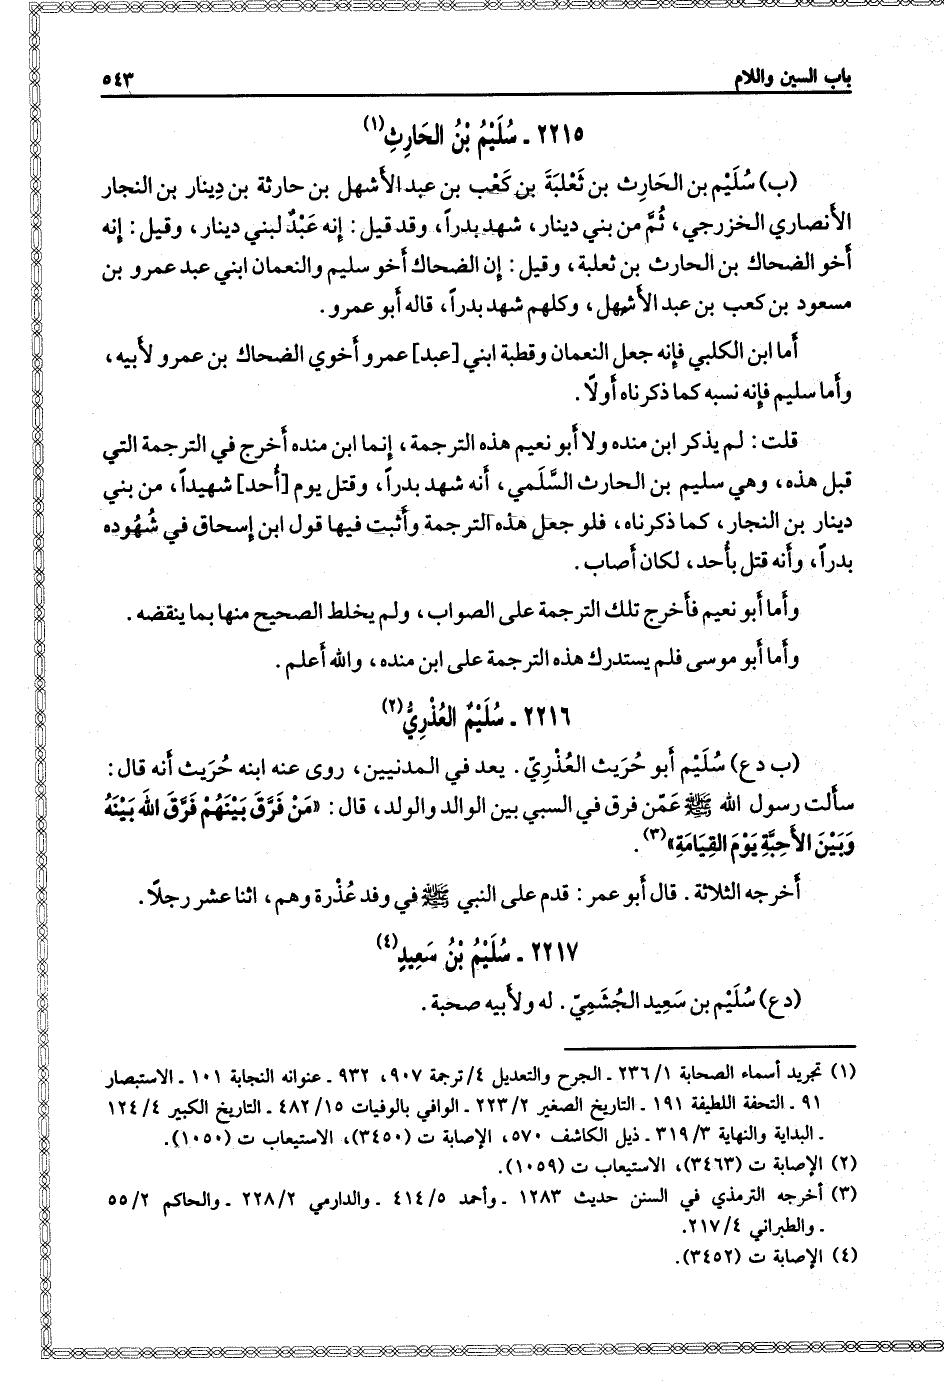 باب السين واللام ٥٤٣
٢٢١٥ ـ سُلَيْمُ بْنُ الحَارِثِ(١)
(ب) سُلَيْم بن الحَارِث بن ثَعْلبَةَ بن كَعْب بن عبد الأَشهل بن حارثة بن دِينار بن النجار
الأَنصاري الخزرجي، ثُمَّ من بني دينار، شهد بدراً، وقد قيل: إنه عَبْدٌ لبني دينار، وقيل: إنه
أَخو الضحاك بن الحارث بن ثعلبة، وقيل: إن الضحاك أَخو سليم والنعمان ابني عبد عمرو بن
مسعود بن كعب بن عبد الأَشهل، وكلهم شهد بدراً، قاله أَبو عمرو.
أَما ابن الكلبي فإنه جعل النعمان وقطبة ابني [عبد] عمرو أَخوي الضحاك بن عمرو لأَبيه،
وأَما سليم فإنه نسبه كما ذكرناه أَولاً.
قلت: لم يذكر ابن منده ولا أَبو نعيم هذه الترجمة، إنما ابن منده أَخرج في الترجمة التي
قبل هذه، وهي سليم بن الحارث السَّلَمي، أَنه شهد بدراً، وقتل يوم [أُحد] شهيداً، من بني
دينار بن النجار، كما ذكرناه، فلو جعل هذه الترجمة وأَثبت فيها قول ابن إسحاق في شُهُوده
بدراً، وأَنه قتل بأُحد، لكان أَصاب.
وأَما أَبو نعيم فأَخرج تلك الترجمة على الصواب، ولم يخلط الصحيح منها بما ينقضه.
وأَما أَبو موسى فلم يستدرك هذه الترجمة على ابن منده، والله أَعلم.
٢٢١٦ ـ سُلَيْمٌ العُذْرِيُّ(٢)
(ب د ع) سُلَيْم أَبو حُرَيث العُذْرِيّ. يعد في المدنيين، روى عنه ابنه حُرَيث أَنه قال:
سأَلت رسول الله ﷺ عَمّن فرق في السبي بين الوالد والولد، قال: «مَنْ فَرَّقَ بَيْنَهُمْ فَرَّقَ الله بَيْنَهُ
وَبَيْنَ الأَحِبَّةِ يَوْمَ القِيَامَةِ»(٣).
أَخرجه الثلاثة. قال أَبو عمر: قدم على النبي ﷺ في وفد عُذْرة وهم، اثنا عشر رجلاً.
٢٢١٧ ـ سُلَيْمُ بْنُ سَعِيدٍ(٤)
(د ع) سُلَيْم بن سَعِيد الجُشَمِيّ. له ولأَبيه صحبة.
(١) تجريد أسماء الصحابة ١/ ٢٣٦ ـ الجرح والتعديل ٤/ ترجمة ٩٠٧، ٩٣٢ ـ عنوانه النجابة ١٠١ ـ الاستبصار
٩١ ـ التحفة اللطيفة ١٩١ ـ التاريخ الصغير ٢/ ٢٢٣ ـ الوافي بالوفيات ١٥/ ٤٨٢ ـ التاريخ الكبير ٤/ ١٢٤
ـ البداية والنهاية ٣/ ٣١٩ ـ ذيل الكاشف ٥٧٠، الإصابة ت (٣٤٥٠)، الاستيعاب ت (١٠٥٠).
(٢) الإصابة ت (٣٤٦٣)، الاستيعاب ت (١٠٥٩).
(٣) أخرجه الترمذي في السنن حديث ١٢٨٣ ـ وأحمد ٥/ ٤١٤ ـ والدارمي ٢/ ٢٢٨ ـ والحاكم ٢/ ٥٥
ـ والطبراني ٤/ ٢١٧.
(٤) الإصابة ت (٣٤٥٢).